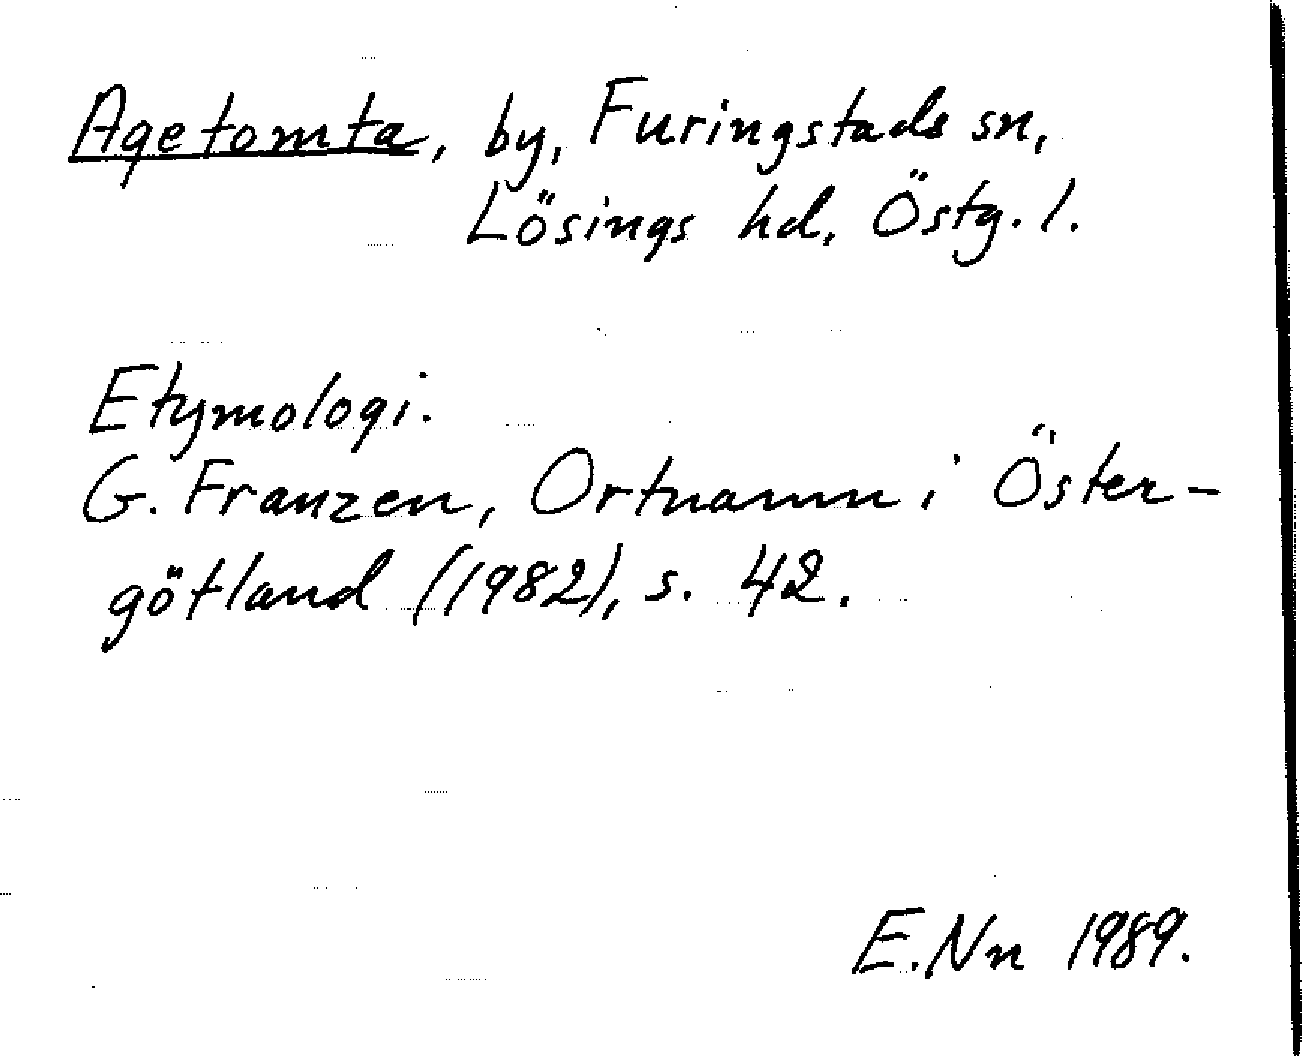 Agetomta, by, Furingstads sn,
Lösings hd, Östg. l.
Etymologi.
G. Franzen, Ortnamn i Öster-
götland (1982), s. 42.
E.Nn 1989.